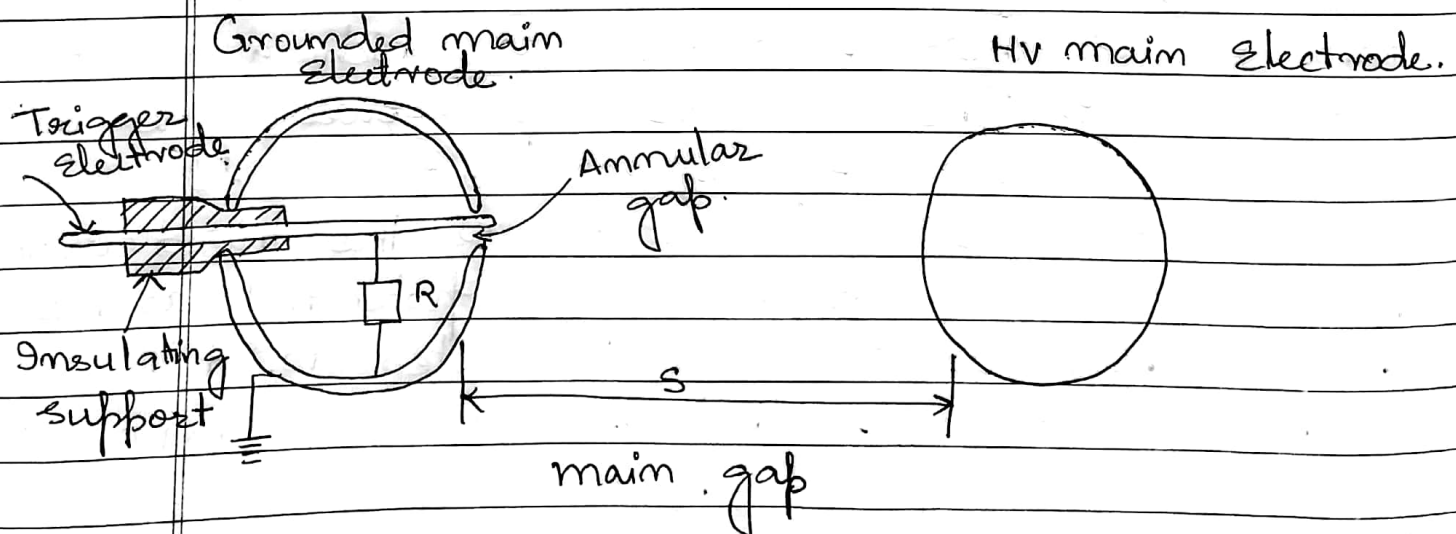 Grounded main
Electrode.
HV main Electrode.
Trigger
Electrode
Annular
gap.
R
Insulating
support
S
main gap